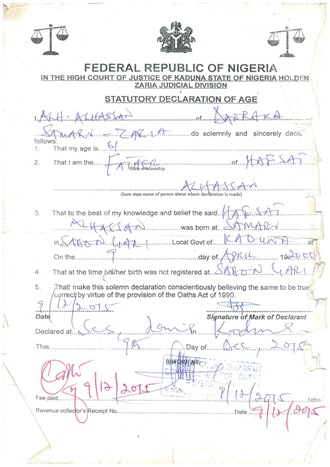 FEDERAL REPUBLIC OF NIGERIA
IN THE HIGH COURT OF JUSTICE OF KADUNA STATE OF NIGERIA HOLDEN
ZARIA JUDICIAL DIVISION
STATUTORY DECLARATION OF AGE
I, ALH. ALHASSAN of DANRAKA
SAMARU - ZARIA do solemnly and sincerely declare
follows
1. That my age is 61
2. That I am the FATHER of HAFSAT
State relationship
ALHASSAN
(here state name of person about whom declaration is made)
3. That to the best of my knowledge and belief the said HAFSAT
ALHASSAN was born at SAMARU
in SABON GARI Local Govt of KADUNA
On the 9 day of APRIL 2000
4. That at the time his/her birth was not registered at SABON GARI
5. That make this solemn declaration conscientiously believing the same to be true
correct by virtue of the provision of the Oaths Act of 1990.
9/12/2015
Date Signature of Mark of Declarant
Declared at
This 9th Day of Dec, 2015
9/12/2015 9/12/2015
Fee paid
Revenue collector's Receipt No. Date 9/12/2015